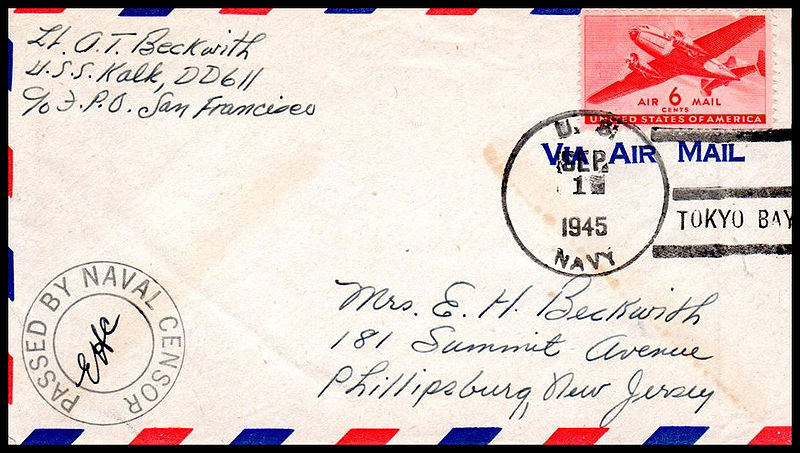 Lt. A.T. Beckwith
U.S.S. Kalk, DD611
c/o F.P.O. San Francisco
AIR 6 MAIL
CENTS
UNITED STATES OF AMERICA
VIA AIR MAIL
U. S.
SEP
1
1945
NAVY
TOKYO BAY
Mrs. E. H. Beckwith
181 Summit Avenue
Phillipsburg, New Jersey
PASSED BY NAVAL CENSOR
EHC